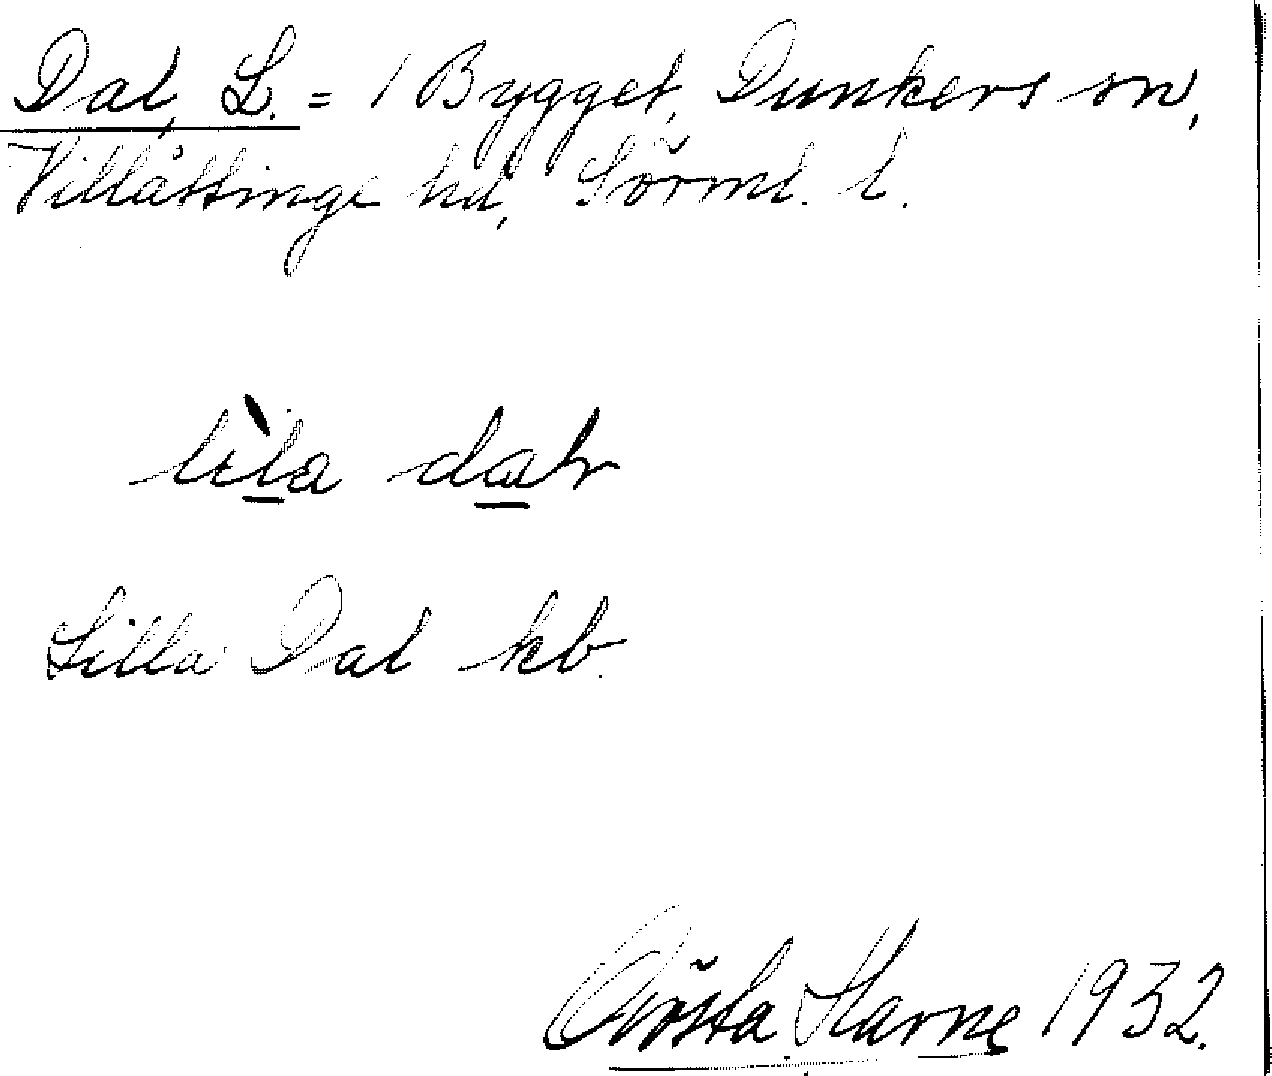 Dal, L. = 1 Bygget, Dunkers sn,
Villåttinge hd, Sörml. l.
lìla dal
Lilla Dal kb.
Gösta Harne 1932.